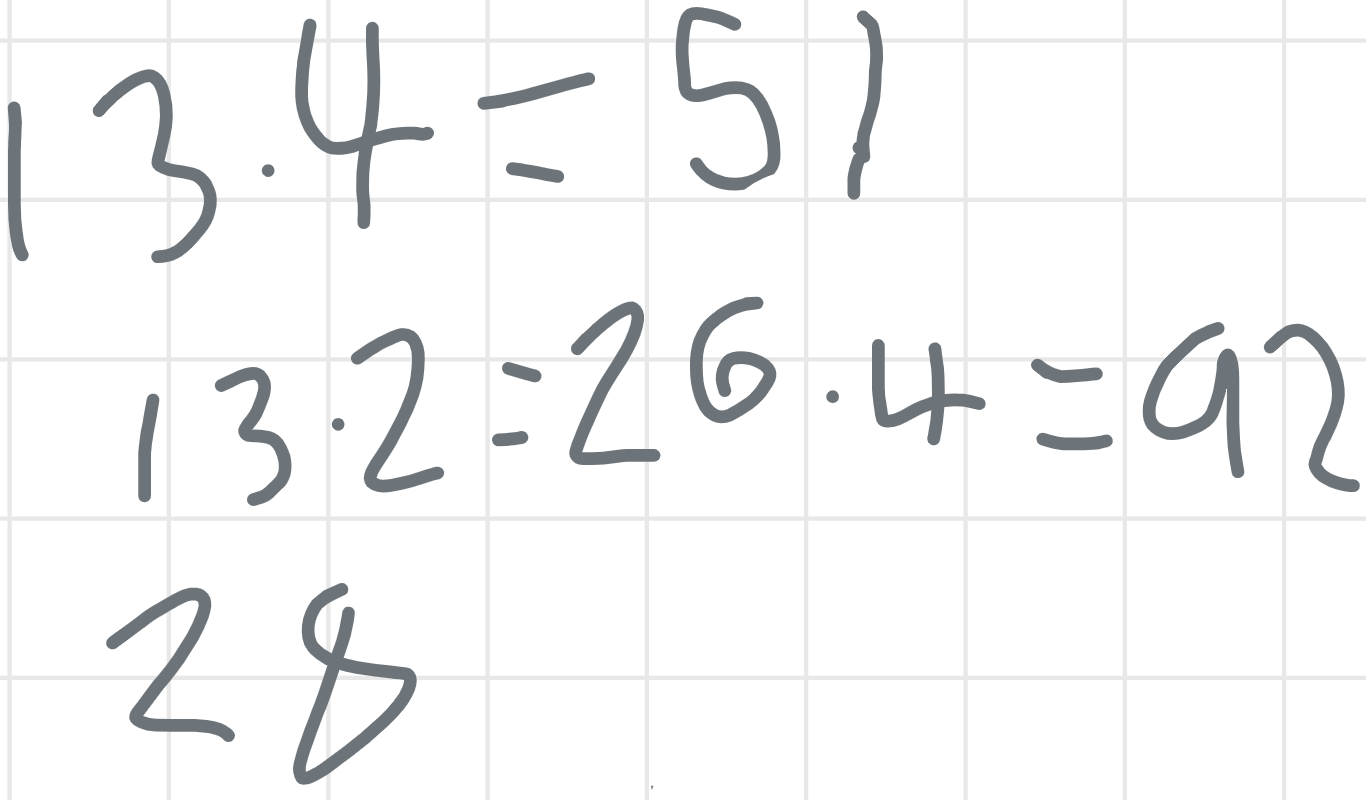 13·4=51
13·2=26·4=92
28